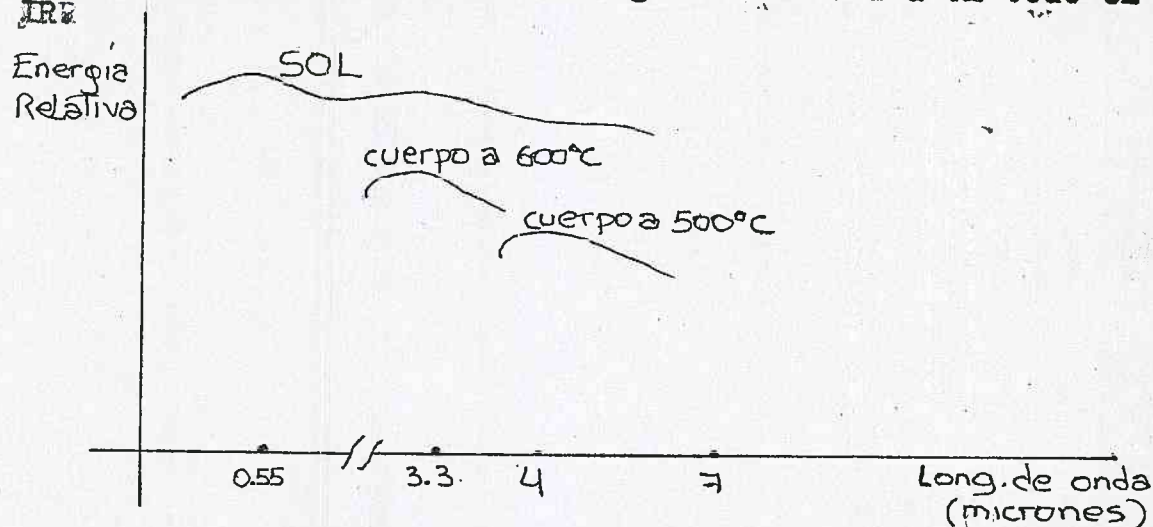 IRE
Energía
Relativa
SOL
cuerpo a 600°C
cuerpo a 500°C
0.55
3.3.
4
7
Long. de onda
(micrones)